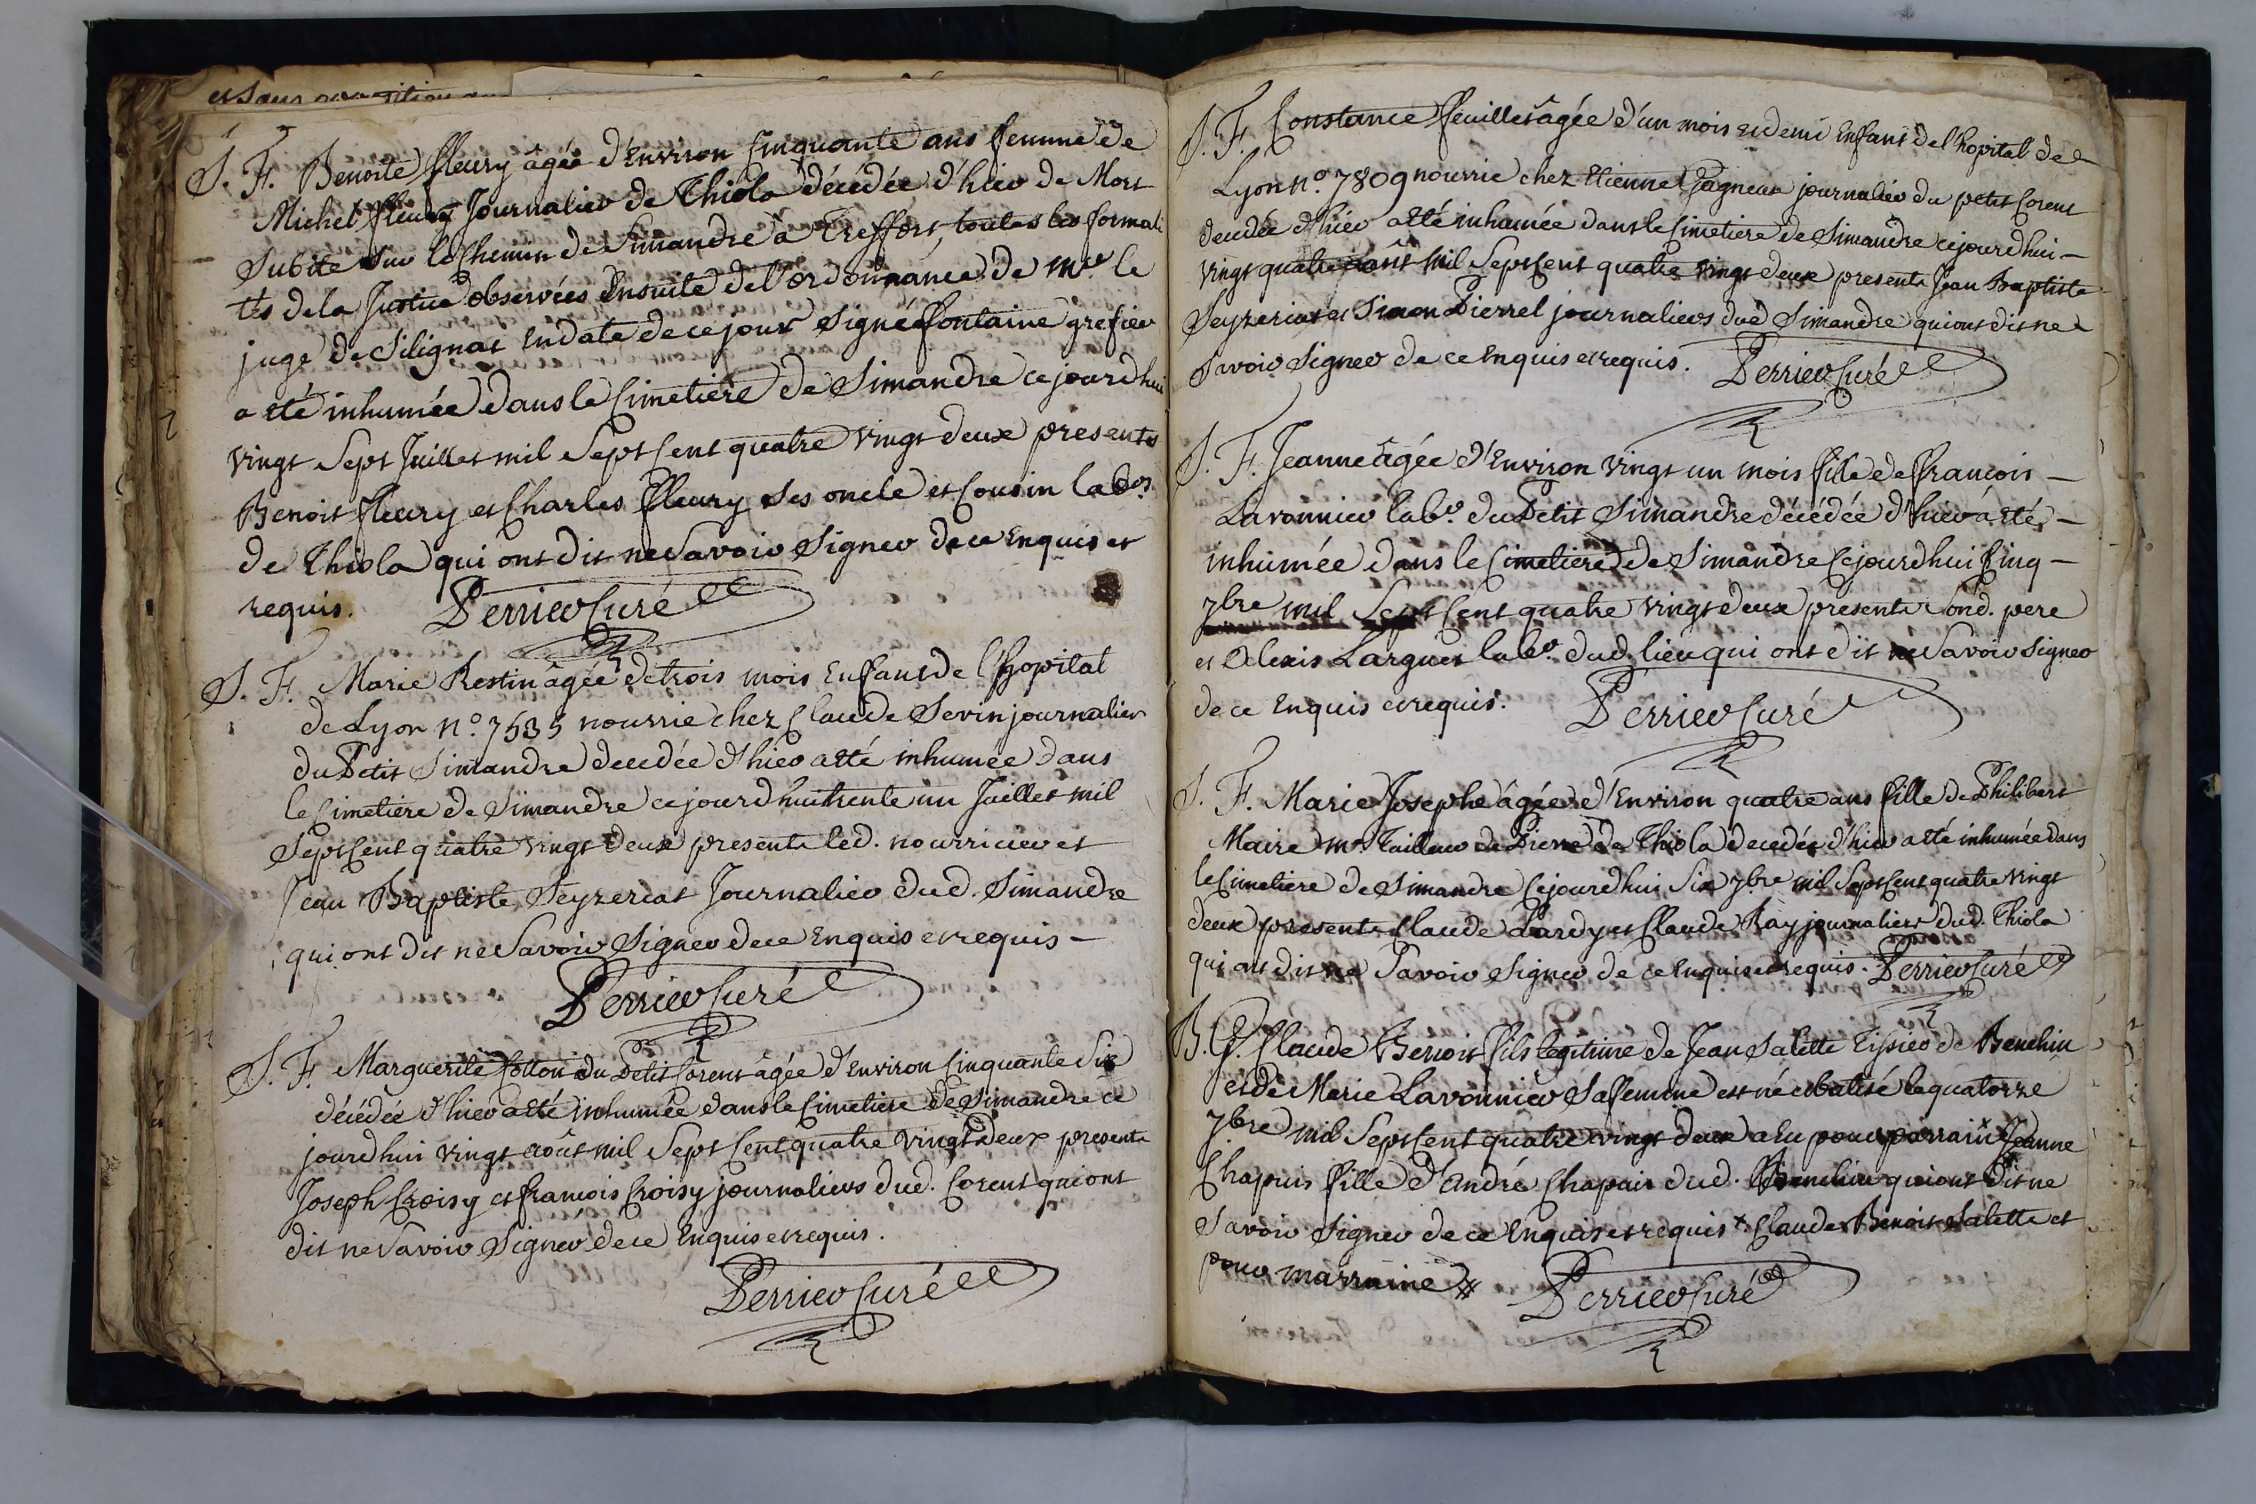 S. F. Benoite fleury âgée d'Environ Cinquante ans femme de
Michel fleury Journalier de Thiola décédée d'hier de Mort
Subite sur le Chemin de Simandre a Treffort, toutes les formali
tés de la Justice observées Ensuite de l'ordonnance de Mr. le
juge de Silignat En date de ce jour Signé fontaine grefier
a été inhumée dans le Cimetiere de Simandre ce jourdhui
vingt Sept Juillet mil Sept Cent quatre vingt deux presents
Benoit fleury et Charles fleury Ses oncle et Cousin labrs.
de Thiola qui ont dit ne Savoir Signer de ce Enquis et
requis. Perrier Curé
S. F. Marie Restin âgée de trois mois Enfant de l'hopital
de Lyon N.o 7535 nourrie chez Claude Sevin journalier
du Petit Simandre decedée d'hier a été inhumée dans
le Cimetiere de Simandre ce jourd'hui trente un Juillet mil
Sept Cent quatre vingt deux presents led. nourricier et
Jean Baptiste Seyzeriat Journalier dud. Simandre
qui ont dit ne Savoir Signer de ce Enquis et requis –
Perrier Curé
S. F. Marguerite Cotton du Petit Corent âgée d'Environ Cinquante Six
décédée d'hier a été inhumée dans le Cimetiere de Simandre ce
jourdhui vingt août mil Sept Cent quatre vingt deux presents
Joseph Croisy et francois Croisy journaliers dud. Corent qui ont
dit ne Savoir Signer de ce Enquis et requis.
Perrier Curé
S. F. Constance feuillet âgée d'un mois et demi Enfant de l'hopital de
Lyon N.o 7809 nourrie chez Etienne Gagneur journalier du petit Corent
decedée d'hier a été inhumée dans le Cimetiere de Simandre ce jourd'hui –
vingt quatre août mil Sept Cent quatre vingt deux presents Jean Baptiste
Seyzeriat et Simon Pierrel journaliers dud Simandre qui ont dit ne
Savoir Signer de ce Enquis et requis. Perrier Curé
S. F. Jeanne âgée d'Environ vingt un mois fille de francois –
Lavonnier labr. du Petit Simandre décédée d'hier a été –
inhumée dans le Cimetiere de Simandre Ce jourdhui Cinq –
7bre mil Sept Cent quatre vingt deux presents Sond. pere
et Alexis Larguet labr. dud. lieu qui ont dit ne Savoir Signer
de ce Enquis et requis. Perrier Curé
S. F. Marie Josephe âgée d'Environ quatre ans fille de Philibert
Maire mr. Tailleur de Pierre de Thiola decedée d'hier a été inhumée dans
le Cimetiere de Simandre Ce jourdhui Six 7bre mil Sept Cent quatre vingt
deux presents Claude Lardy et Claude Ray journaliers dud. Thiola
qui ont dit ne Savoir Signer de ce Enquis et requis. Perrier Curé
B. Claude Benoit fils legitime de Jean Salette Tissier de Banchin
et de Marie Lavonnier Sa femme est né et batisé le quatorze
7bre mil Sept Cent quatre vingt deux a Eu pour parrain x Jeanne
Chapuis fille d'André Chapuis dud. Banchin qui ont dit ne
Savoir Signer de ce Enquis et requis x Claude Benoit Salette et
pour marraine Perrier Curé